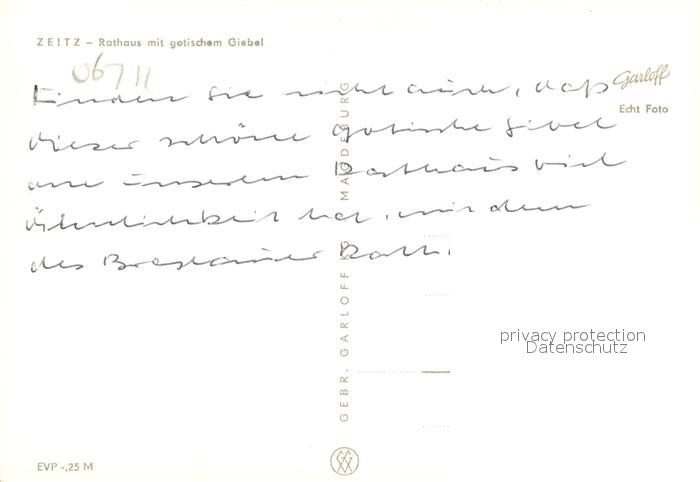 ZEITZ – Rathaus mit gotischem Giebel
06711
Garloff
Echt Foto
Finden Sie nicht auch, daß
dieser schöne gotische Gibel
an unserem Rathaus viel
Ähnlichkeit hat, mit dem
des Breslauer Rath.
GEBR. GARLOFF KG MAGDEBURG
privacy protection
Datenschutz
EVP -,25 M